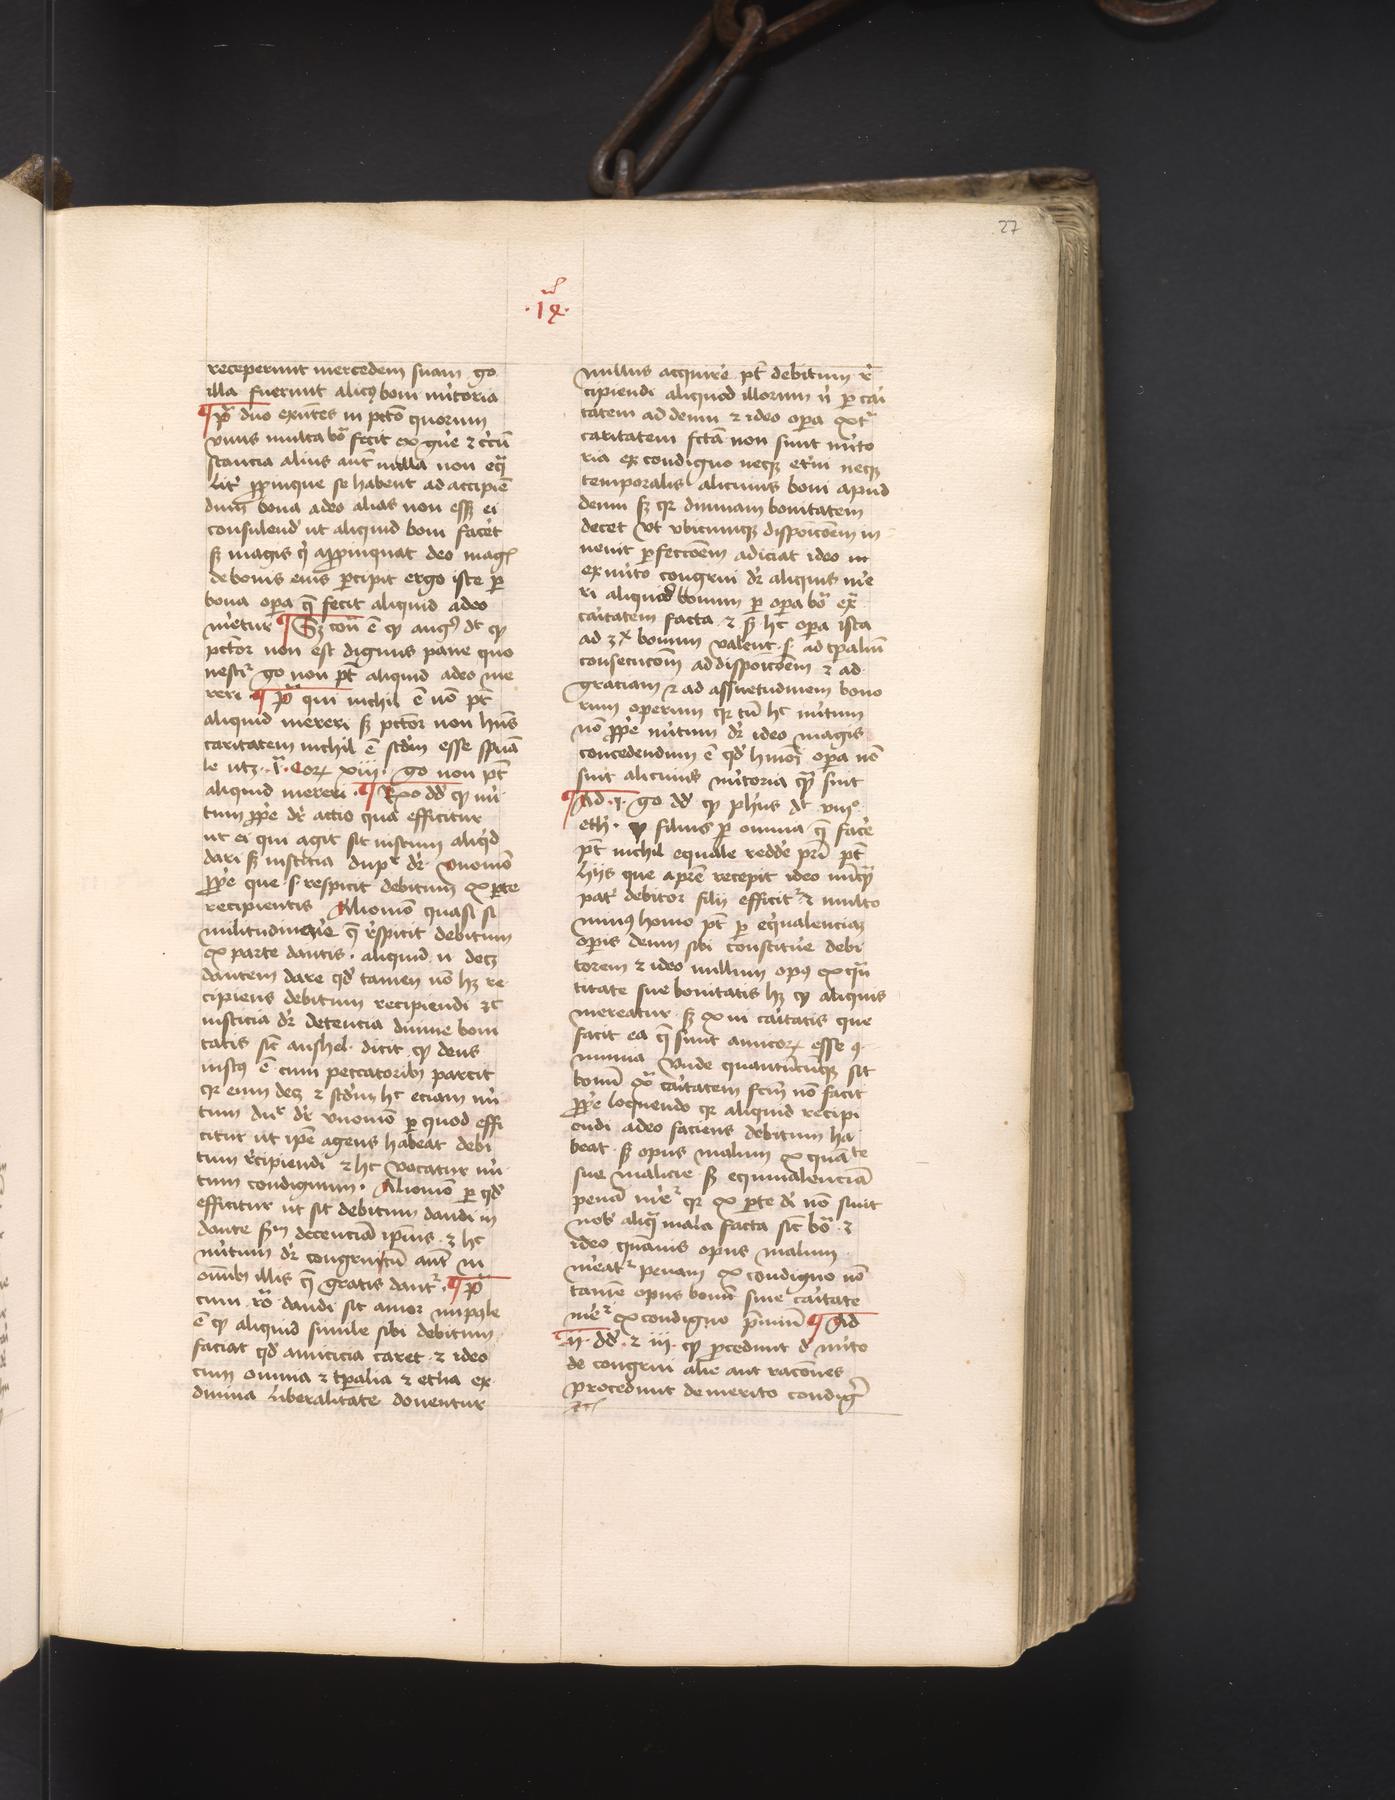 27
·14·
receperunt mercedem suam go
illa fuerunt alicꝰ boni mͥtoria
¶ p̃ duo exñtes in pctõ quorum
vnus multa bõ fecit ex gñe ⁊ cͥcũ
stancia alius aut̃ nulla non eqͣ
litͥ ꝓpinque se habent ad accipiẽ
dum bona adeo alias non ess̃ ei
consulend̃ ut aliquid boni facet̃
sꝫ magis qͥ apropinquat deo magꝭ
de bonis eius ꝑcipit ergo iste ꝑ
bona oꝑa q̃ fecit aliquid adeo
mͥetur ¶ Sꝫ con̄ ẽ ꝙ augꝰ dt̃ ꝙ
pctor non est dignus pane quo
nescitͬ go non pt̃ aliquid adeo me
reri ¶ p̃ qui nichil ẽ nõ pt̃
aliquid mereri sꝫ pctor non hñs
caritatem nichil ẽ scd̃m esse spũa
le utꝫ ·1ͣ· Corꝝ xiii· go non pt̃
aliquid mereri · ¶ Rͦo dd̃ ꝙ mͥ
tum ꝓpͥe dr̃ actio qua efficitur
ut ei qui agit sit iustum aliqͥd
dari sꝫ iusticia dupͬ dr̃ · Vnomõ
ꝓpͥe que ·s· respicit debitum ex ꝑte
recipientis Aliomõ quasi si
militudinarie q̃ respicit debitum
ex parte dantis · aliquid n̄ decꝫ
dantem dare qd̃ tamen nõ hꝫ re
cipiens debitum recipiendi ⁊c̃
iusticia dr̃ decencia diuine boni
tatis sic̃ anshel· dicit ꝙ deus
iustꝰ ẽ cum peccatoribꝰ parcit
qꝛ eum decꝫ ⁊ scd̃m hͦ eciam mͥ
tum duͬ dr̃ vnomõ ꝑ quod effi
citur ut ip̃e agens habeat debi
tum rͤcipiendi ⁊ hͦ vocatur mͥ
tum condignum · Aliomõ ꝑ qd̃
efficitur ut sit debitum dandi in
dante scd̃m decenciã ip̃ius · ⁊ hͦ
mͥtum dr̃ congrui cũ aut̃ in
om̃ibꝰ illis q̃ gratis dantͬ · ¶ p̃
cum rõ dandi sit amor inpꝰle
ẽ ꝙ aliquid simile sibi debitum
faciat qd̃ amicicia caret · ⁊ ideo
cum omnia ⁊ tꝑalia ⁊ et̃na ex
diuina liberalitate donentur
nullus acquirͤe pt̃ debitum rͤ
cipiendi aliquod illorum nͥ ꝑ caͥ
tatem ad deum ⁊ ideo oꝑa extͣ
caritatem fctã non sunt mͥto
ria ex condigno neqꝫ et̃ni neqꝫ
temporalis alicuius boni apud
deum sꝫ qꝛ diuinam bonitatem
decet vt vbicumqꝫ disposicõem in
uenit ꝑfeccõem adiciat ideo in
ex mͥto congrui dr̃ aliquis mͥe
ri aliquod bonum ꝑ oꝑa bõ extͣ
caͥtatem facta · ⁊ sꝫ hͦ oꝑa ista
ad 3ˣ bonum valent ·s· ad tꝑaliũ
consecucõem ad disposicõem ⁊ ad
graciam ⁊ ad assuetudinem bono
rum operum qꝛ tñ hͦ mͥtum
nõ ꝓpͥe mͥtum dr̃ ideo magis
concedendum ẽ qd̃ hmõi oꝑa nõ
sint alicuius mͥtoria qͣ sint
¶ Ad ·1· go dd̃ ꝙ phͥus dt̃ viijͦ·
eth· ꝙ filius ꝑ omnia q̃ facͤe
pt̃ nichil equale reddͤe pr̃i pt̃
hijs que a pr̃e recepit ideo nũqͣ
patͬ debitor filij efficitͬ ⁊ multo
minꝰ homo pt̃ ꝑ eqͥualenciaꝫ
oꝑis deum sibi constituͤe debi
torem ⁊ ideo nullum opꝰ ex qͣn
titate sue bonitatis hꝫ ꝙ aliquis
mereatur sꝫ ex ui caͥtatis que
facit ea q̃ sunt amicorꝝ esse ꝯ
munia · Vnde quantũcũqꝫ sit
bonũ extͣ caͥtatem fctm̃ nõ facit
ꝓpͥe loquendo qꝛ aliquid recipi
endi adeo faciens debitum ha
beat · sꝫ opus malum ex quãte
sue malicie sꝫ equiualenciã
penã mͥeͬ qꝛ ex ꝑte di nõ sunt
nob̃ aliqͣ mala facta sic̃ bõ · ⁊
ideo quãuis opus malum
mͥeatͬ penam ex condigno nõ
tamẽ opus bonũ sine caͥtate
mͥeͬ ex condigno p̃miũ ¶ Ad
·ii· dd̃ · ⁊ iii · ꝙ ꝓcedunt d̃ mͥto
de congrui alie aut racõnes
procedunt de merito condigͥ
⁊c̃